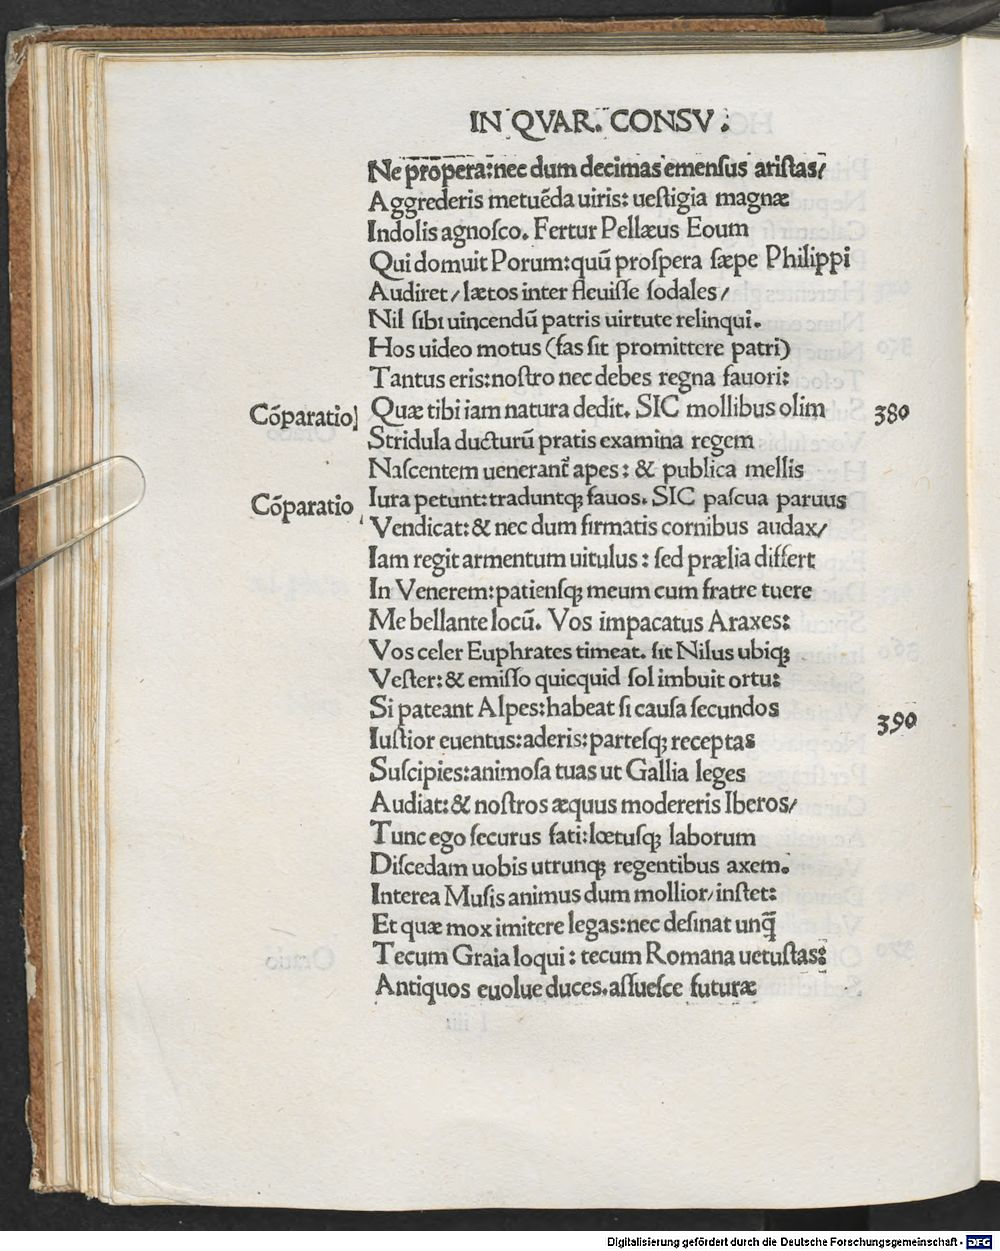 IN QVAR. CONSV.
Ne prōpera: nec dum decimas emensus aristas/
Aggrederis metuēda uiris: uestigia magnæ
Indolis agnosco. Fertur Pellæus Eoum
Qui domuit Porum: quū prospera sæpe Philippi
Audiret/ lætos inter fleuisse sodales/
Nil sibi uincendū patris uirtute relinqui.
Hos uideo motus (fas sit promittere patri)
Tantus eris: nostro nec debes regna fauori:
Cōparatio Quæ tibi iam natura dedit. SIC mollibus olim 380
Stridula ducturū pratis examina regem
Nascentem uenerant᷑ apes: & publica mellis
Cōparatio Iura petunt: traduntqꝫ fauos. SIC pascua paruus
Vendicat: & nec dum firmatis cornibus audax/
Iam regit armentum uitulus: sed prælia differt
In Venerem: patiensqꝫ meum cum fratre tuere
Me bellante locū. Vos impacatus Araxes:
Vos celer Euphrates timeat. sit Nilus ubiqꝫ
Vester: & emisso quicquid sol imbuit ortu:
Si pateant Alpes: habeat si causa secundos
Iustior euentus: aderis: partesqꝫ receptas 390
Suscipies: animosa tuas ut Gallia leges
Audiat: & nostros æquus modereris Iberos/
Tunc ego securus fati: lœtusqꝫ laborum
Discedam uobis utrunqꝫ regentibus axem.
Interea Musis animus dum mollior/ instet:
Et quæ mox imitere legas: nec desinat unq̄
Tecum Graia loqui: tecum Romana uetustas:
Antiquos euolue duces. assuesce futuræ
Digitalisierung gefördert durch die Deutsche Forschungsgemeinschaft - DFG